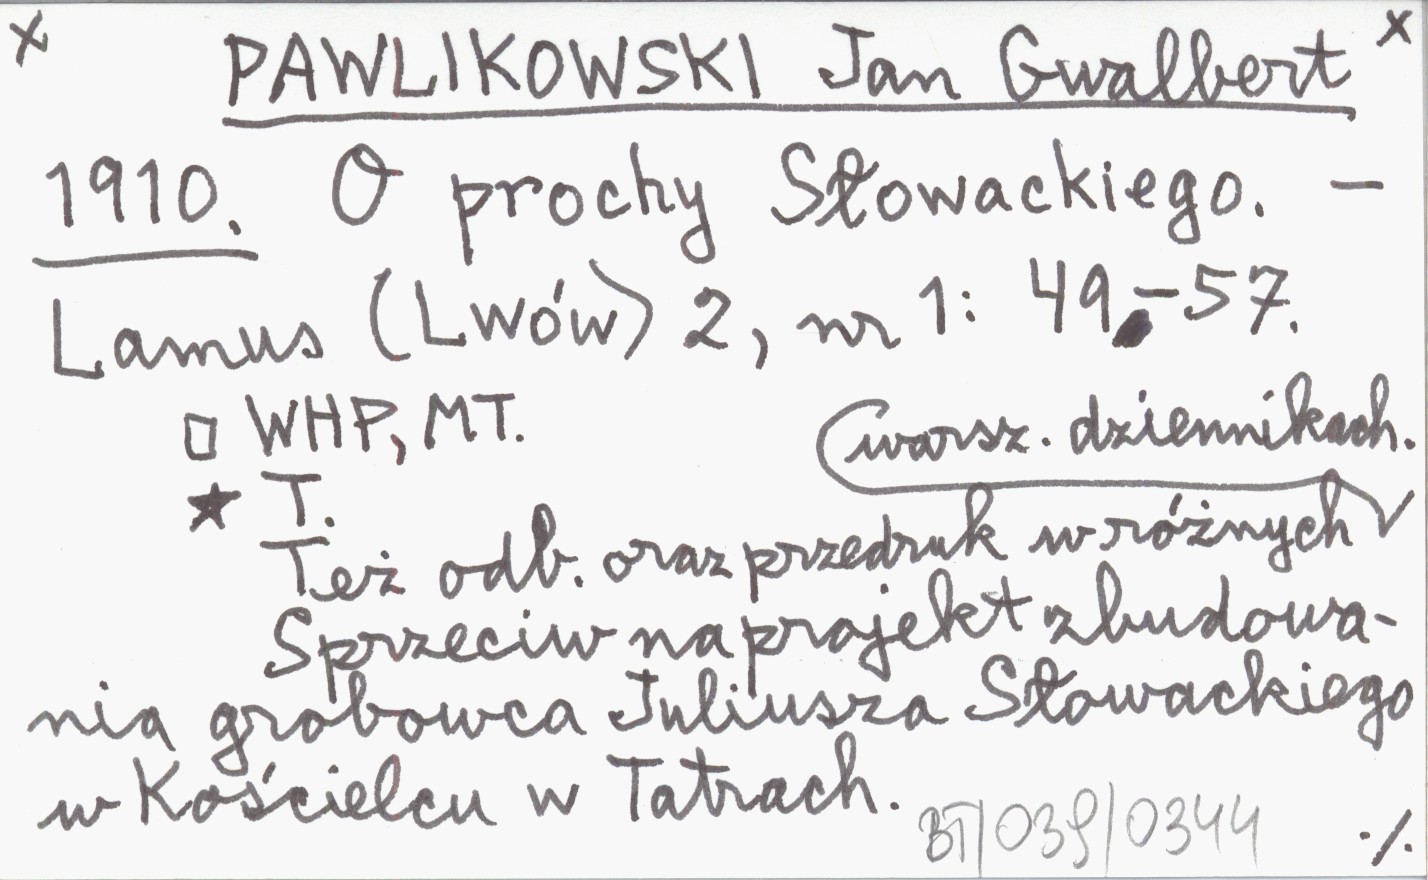 x PAWLIKOWSKI Jan Gwalbert x
1910. O prochy Słowackiego. –
Lamus (Lwów) 2, nr 1: 49–57.
□ WHP, MT.
★ T.
Też odb. oraz przedruk w różnych
warsz. dziennikach.
Sprzeciw na projekt zbudowa-
nia grobowca Juliusza Słowackiego
w Kościelcu w Tatrach.
BT/039/0344
./.